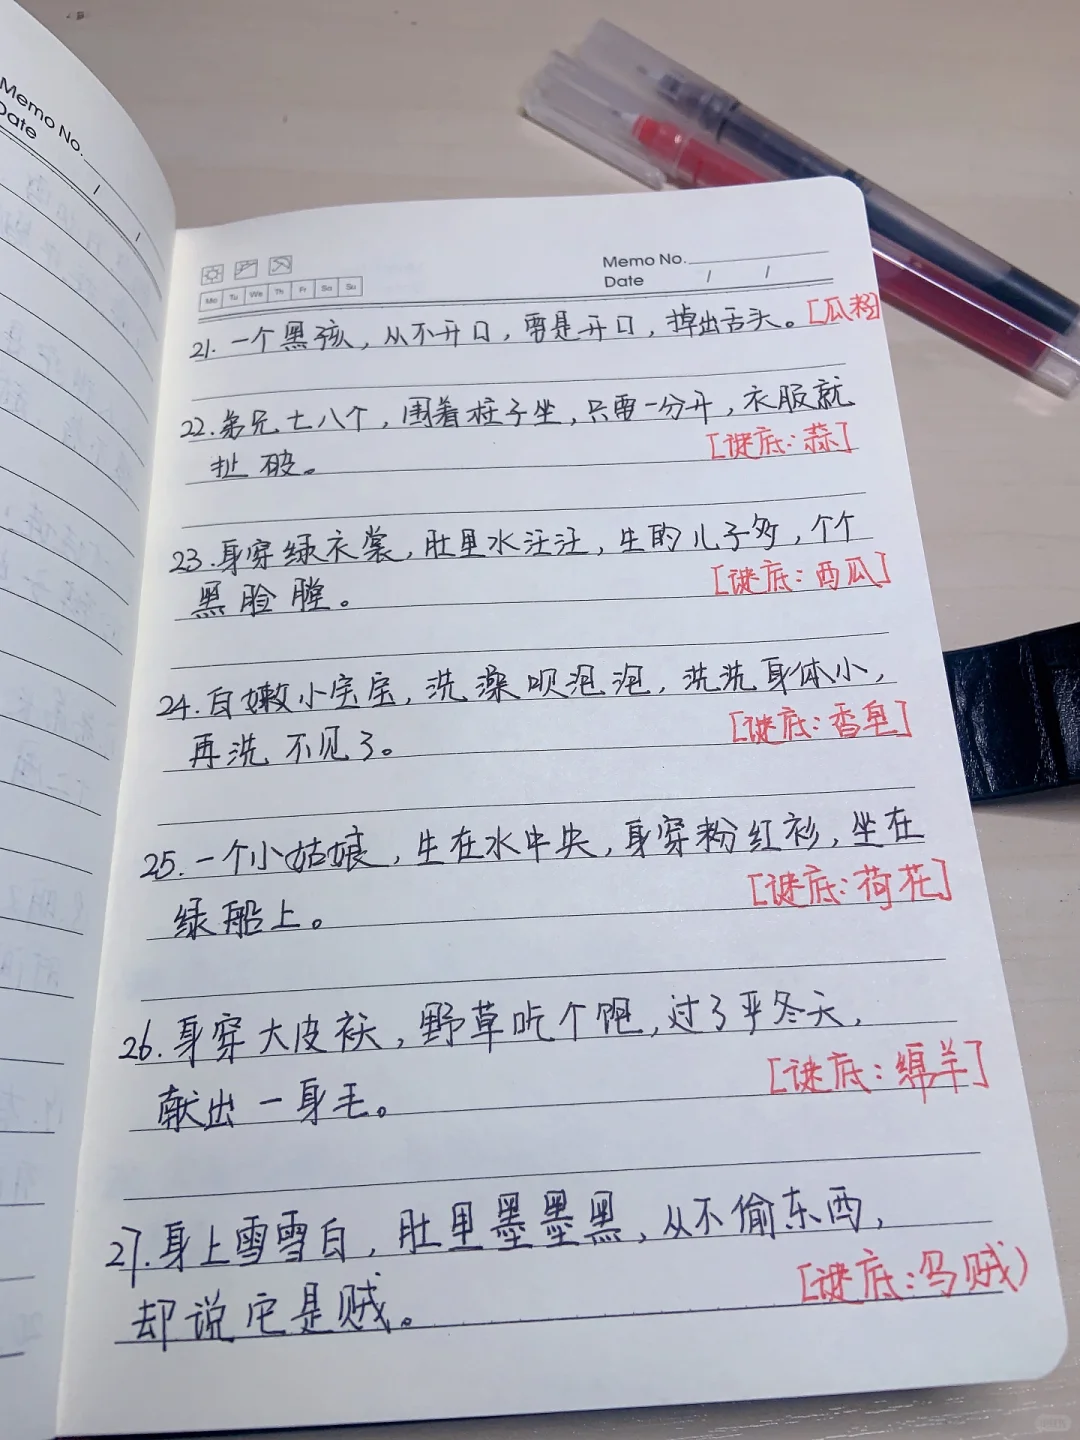 Memo No.
Date / /
Memo No.
Date / /
Mo Tu We Th Fr Sa Su
21. 一个黑孩，从不开口，要是开口，掉出舌头。[瓜籽]
22. 弟兄七八个，围着柱子坐，只要一分开，衣服就
扯破。 [谜底：蒜]
23. 身穿绿衣裳，肚里水汪汪，生的儿子多，个个
黑脸膛。 [谜底：西瓜]
24. 白嫩小宝宝，洗澡吹泡泡，洗洗身体小，
再洗不见了。 [谜底：香皂]
25. 一个小姑娘，生在水中央，身穿粉红衫，坐在
绿船上。 [谜底：荷花]
26. 身穿大皮袄，野草吃个饱，过了严冬天，
献出一身毛。 [谜底：绵羊]
27. 身上雪雪白，肚里墨墨黑，从不偷东西，
却说它是贼。 [谜底：乌贼)